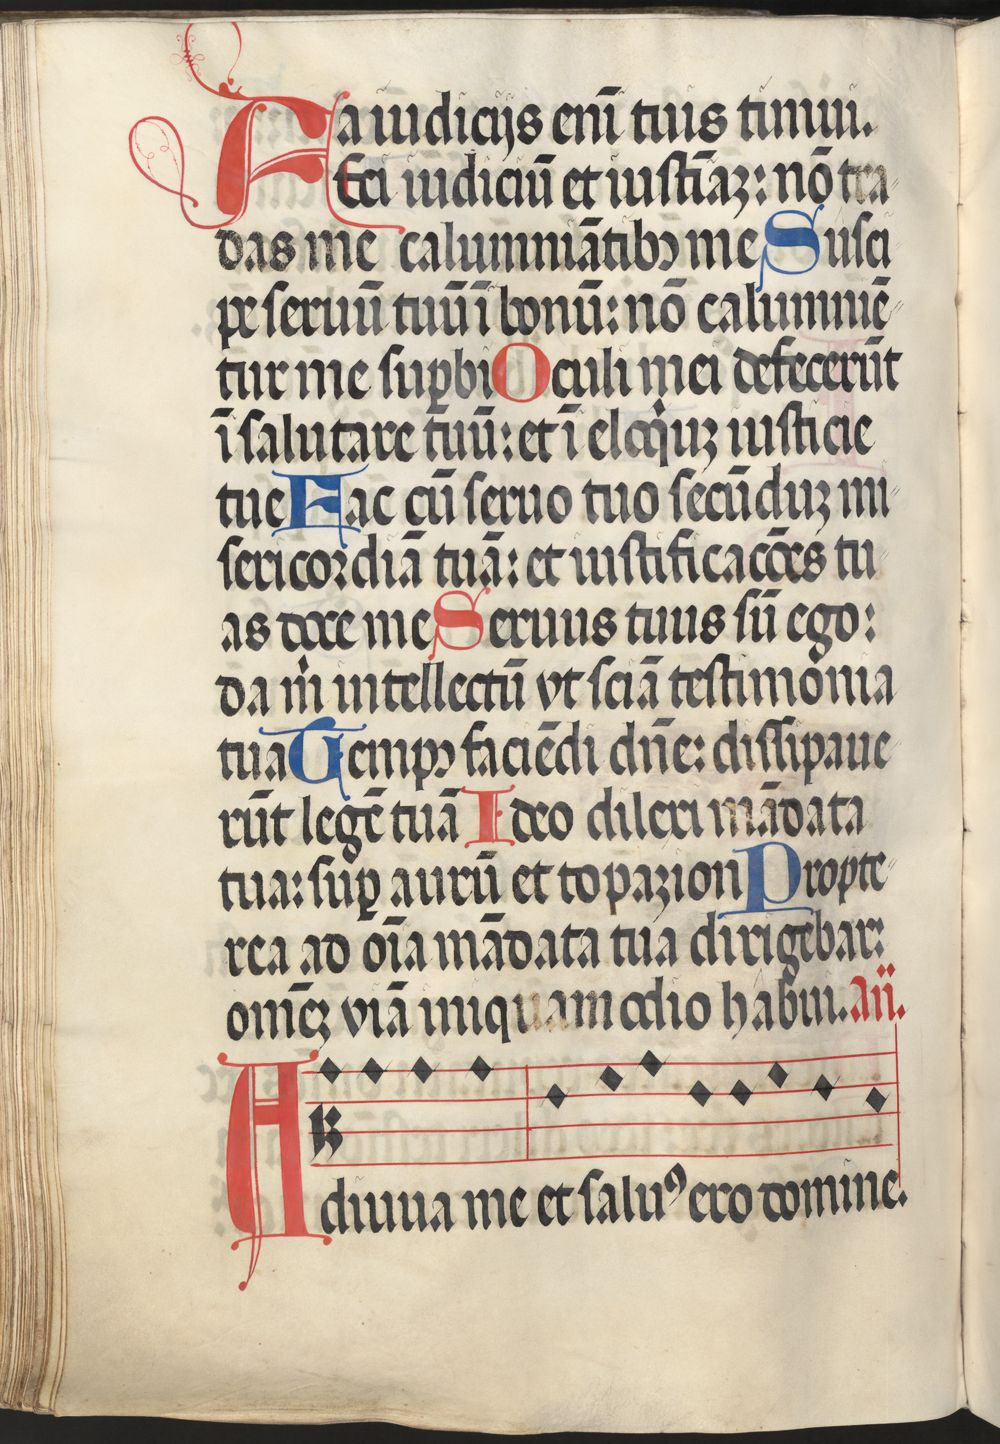 a iudicijs enī tuis timui.
Feci iudiciū et iustīaꝫ: nō tra
das me calumniātibꝰ me Susci
pe seruū tuū ī bonū: nō calumniē
tur me suꝑbi Oculi mei defecerūt
ī salutare tuū: et ī eloqͥuꝫ iusticie
tue Fac cū seruo tuo secūduꝫ mi
sericordiā tuā: et iustificacōes tu
as doce me Seruus tuus sū ego:
da mͥ intellectū vt sciā testimonia
tua Tempꝰ faciēdi dn̄e: dissipaue
rūt legē tuā Ideo dilexi mādata
tua: suꝑ aurū et topazion Propte
rea ad oīa mādata tua dirigebar:
omēꝫ viā iniquam odio habui. añ.
Adiuua me et saluꝰ ero domine.